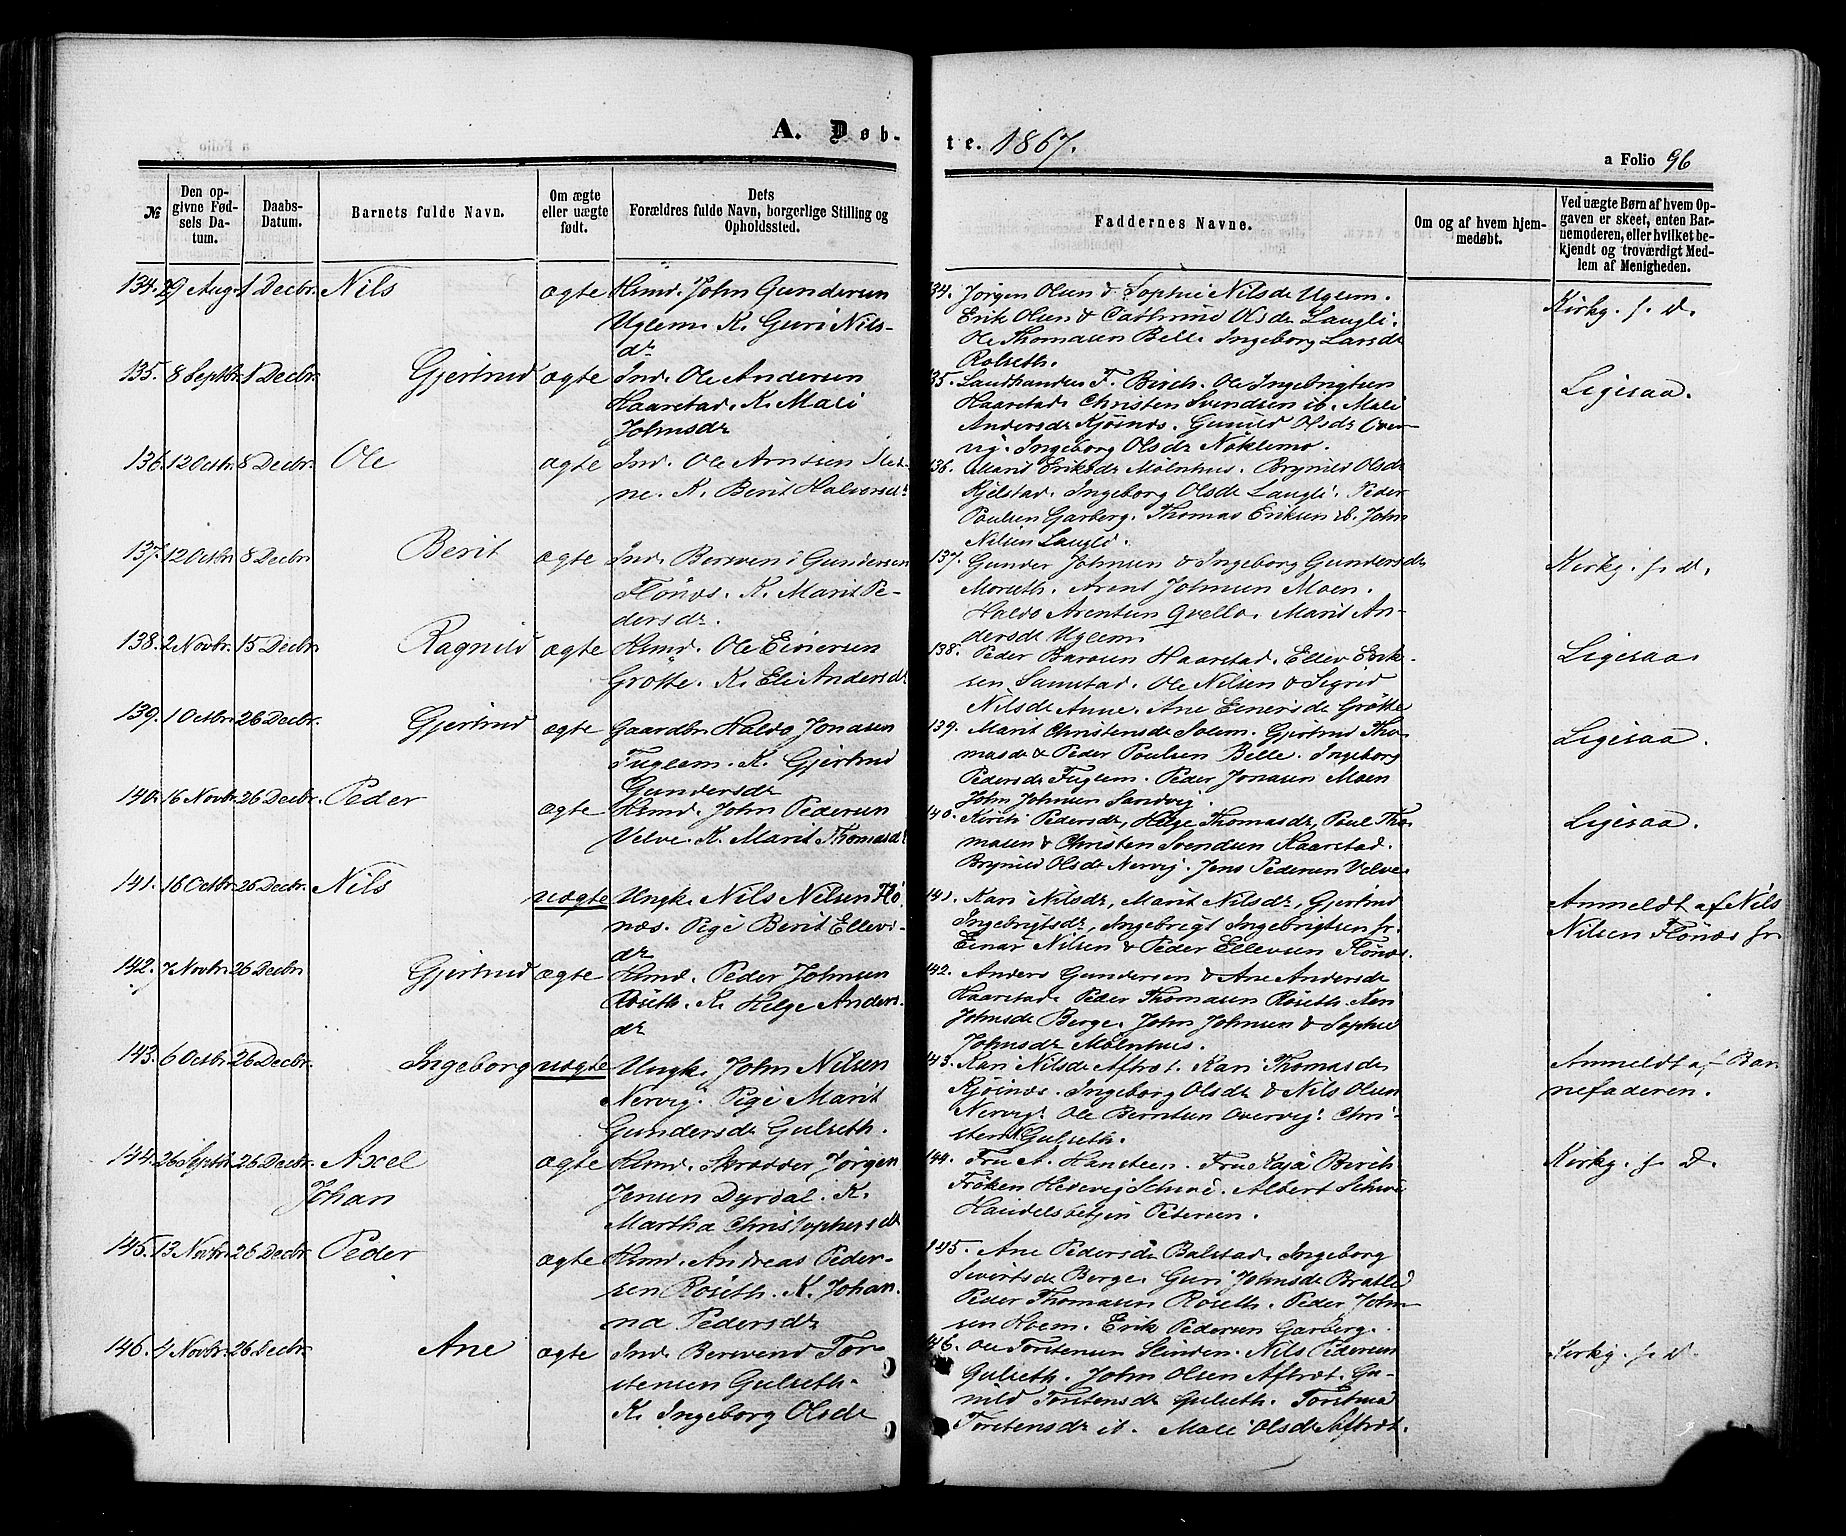 A. Døb-
te. 1867.
a Folio 96
№
Den op-
givne Fød-
sels Da-
tum.
Daabs-
Datum.
Barnets fulde Navn.
Om ægte
eller uægte
født.
Dets
Forældres fulde Navn, borgerlige Stilling og
Opholdssted.
Faddernes Navne.
Om og af hvem hjem-
medøbt.
Ved uægte Børn af hvem Op-
gaven er skeet, enten Bar-
nemoderen, eller hvilket be-
kjendt og troværdigt Med-
lem af Menigheden.
134. 29 Aug. 1 Decbr. Nils ægte Hsmd. John Gundersen
Uglem. K. Guri Nils-
dr
134. Jørgen Olsen & Sophie Nilsdr Uglem.
Erik Olsen & Cathrine Olsdr Laugli.
Ole Thomasen Belle. Ingeborg Larsdr
Rolseth.
Kirkg. s. d.
135. 8 Septbr. 1 Decbr. Gjertrud ægte Ind. Ole Andersen
Haarstad. K. Mali
Johnsdr
135. Landhandler F. Birch. Ole Ingebrigtsen
Haarstad. Christen Svendsen ib. Mali
Andersdr Kjøsnæs. Gunild Olsdr Over-
vig. Ingeborg Olsdr Nøklemo.
Ligesaa.
136. 12 Octbr. 8 Decbr. Ole ægte Ind. Ole Arntsen Slet-
ne. K. Berit Halvorsdr
136. Marit Eriksdr Mølnhus. Brynild Olsdr
Kjelstad. Ingeborg Olsdr Laugli. Peder
Paulsen Garberg. Thomas Eriksen ib. John
Nilsen Laugli.
137. 12 Octbr. 8 Decbr. Berit ægte Ind. Bersven Gundersen
Flønæs. K. Marit Pe-
dersdr.
137. Gunder Johnsen & Ingeborg Gundersdr
Morseth. Arent Johnsen Moen.
Haldo Arentsen Qvello. Marit An-
dersdr Uglem.
Kirkg. s. d.
138. 2 Novbr. 15 Decbr. Ragnild ægte Hsmd. Ole Einersen
Grøtte. K. Eli Andersdr
138. Peder Larsen Haarstad. Ellev Erik-
sen Samstad. Ole Nilsen & Sigrid
Nilsdr Aune. Ane Einersdr Grøtte
Ligesaa
139. 1 Octbr. 26 Decbr. Gjertrud ægte Gaardbr. Haldo Jonasen
Fuglem. K. Gjertrud
Gundersdr
139. Marit Christensdr Solem. Gjertrud Tho-
masdr & Peder Poulsen Belle. Ingeborg
Pedersdr Fuglem. Peder Jonasen Moen
John Johnsen Sandvig.
Ligesaa.
140. 16 Novbr. 26 Decbr. Peder ægte Hsmd. John Pedersen
Velve. K. Marit Thomasdr
140. Kirsti Pedersdr, Helge Thomasdr, Poul Tho-
masen & Christen Svendsen Haarstad.
Brynild Olsdr Nervig. Jens Pedersen Velve.
Ligesaa.
141. 16 Octbr. 26 Decbr. Nils uægte Ungk. Nils Nilsen Flø-
næs. Pige Berit Ellevs-
dr
141. Kari Nilsdr, Marit Nilsdr, Gjertrud
Ingebrigtsdr, Ingebrigt Ingebrigtsen jr.
Einar Nilsen & Peder Ellevsen Flønæs.
Anmeldt af Nils
Nilsen Flønæs jr.
142. 7 Novbr. 26 Decbr. Gjertrud ægte Hsmd. Peder Johnsen
Røseth. K. Helge Anders-
dr
142. Anders Gundersen & Ane Andersdr
Haarstad. Peder Thomasen Røseth. Kari
Johnsdr Berge. John Johnsen & Sophie
Johnsdr Mølnhus.
143. 6 Octbr. 26 Decbr. Ingeborg uægte Ungk. John Nilsen
Nervig. Pige Marit
Gundersdr Gulseth.
143. Kari Nilsdr Aftrøt. Kari Thomasdr
Kjøsnæs. Ingeborg Olsdr & Nils Olsen
Nervig. Ole Berntsen Overvig. Chri-
sten Gulseth.
Anmeldt af Bar-
nefaderen.
144. 26 Septbr. 26 Decbr. Axel
Johan ægte Hsmd. Skrædder Jørgen
Jensen Dyrdal. K.
Martha Christophersdr
144. Fru A. Hansteen. Fru Kaja Birch
Frøken Hedevig Schive. Albert Schive
Handelsbetjen Petersen.
Kirkg. s. D.
145. 13 Novbr. 26 Decbr. Peder ægte Hsmd. Andreas Peder-
sen Røseth. K. Johan-
na Pedersdr
145. Ane Pedersdr Balstad. Ingeborg
Sivertsdr Berge. Guri Johnsdr Bratli
Peder Thomasen Røseth. Peder John-
sen Hoem. Erik Pedersen Garberg.
146. 4 Novbr. 26 Decbr. Ane ægte Ind. Bersvend Tor-
stensen Gulseth.
K. Ingeborg Olsdr
146. Ole Torstensen Slinden. Nils Pedersen
Gulseth. John Olsen Aftrøt. Gu-
nild Torstensdr Gulseth. Torstina
Torstensdr ib. Mali Olsdr Aftrøt.
Kirkg. s. d.